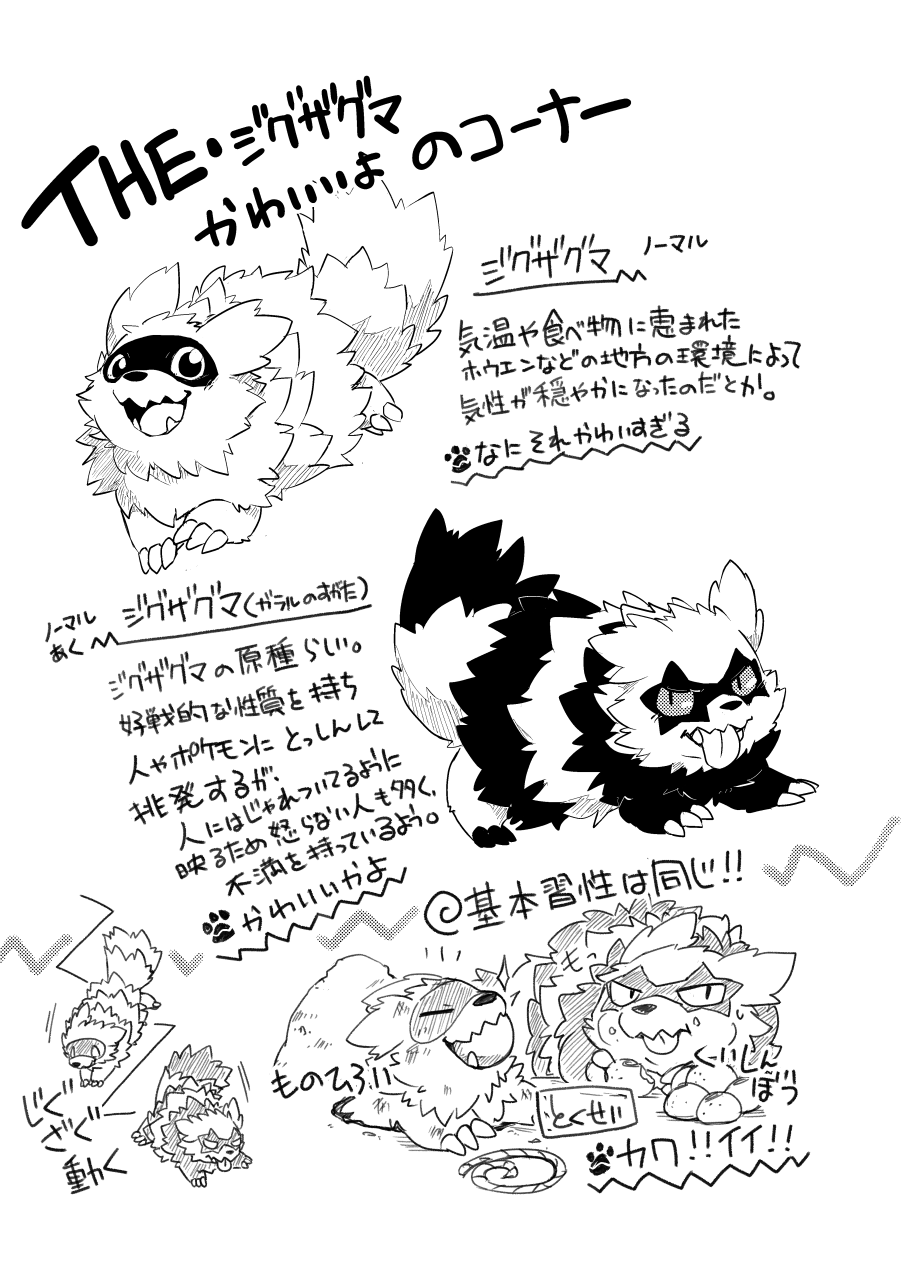 THE・ジグザグマ
かわいいよ のコーナー
ジグザグマ ノーマル
気温や食べ物に恵まれた
ホウエンなどの地方の環境によって
気性が穏やかになったのだとか。
なにそれかわいすぎる
ノーマル
あく
ジグザグマ(ガラルのすがた)
ジグザグマの原種らしい。
好戦的な性質を持ち
人やポケモンにとっしんして
挑発するが、
人にはじゃれついてるように
映るため怒らない人も多く、
不満を持っているよう。
かわいいかよ
@基本習性は同じ!!
じぐ
ざぐ
動く
ものひろい
もっ
くいしん
ぼう
とくせい
カワ!!イイ!!